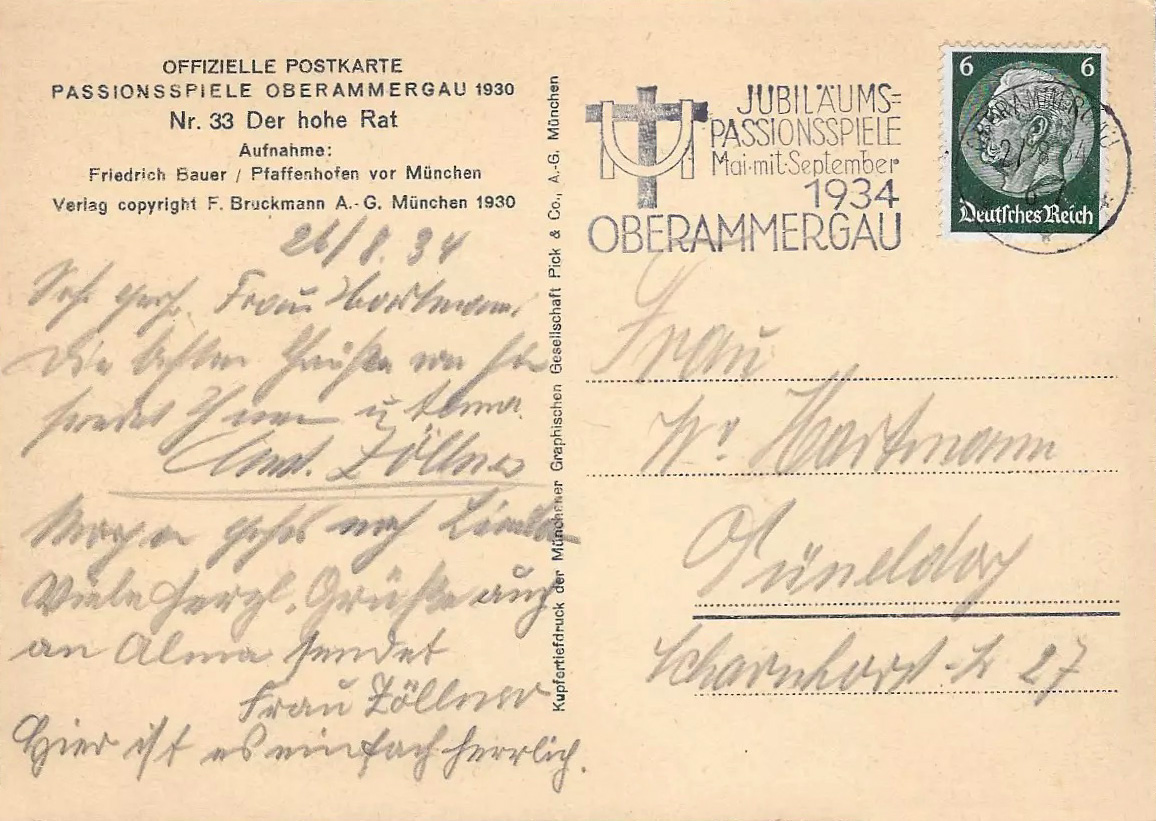 OFFIZIELLE POSTKARTE
PASSIONSSPIELE OBERAMMERGAU 1930
Nr. 33 Der hohe Rat
Aufnahme:
Friedrich Bauer / Pfaffenhofen vor München
Verlag copyright F. Bruckmann A.-G. München 1930
26/8. 34
Frau Hartmann,
Die besten Grüße von hier
sendet Ihnen u. Alma
Zöllner
Morgen geht's nach
Viele herzl. Grüße auch
an Alma sendet
Frau Zöllner
Hier ist es einfach herrlich.
Kupfertiefdruck der Münchner Graphischen Gesellschaft Pick & Co., A.-G. München
JUBILÄUMS=
PASSIONSSPIELE
Mai-mit-September
1934
OBERAMMERGAU
6 6
Deutsches Reich
OBERAMMERGAU
Frau
Hartmann
Scharnhorst 27